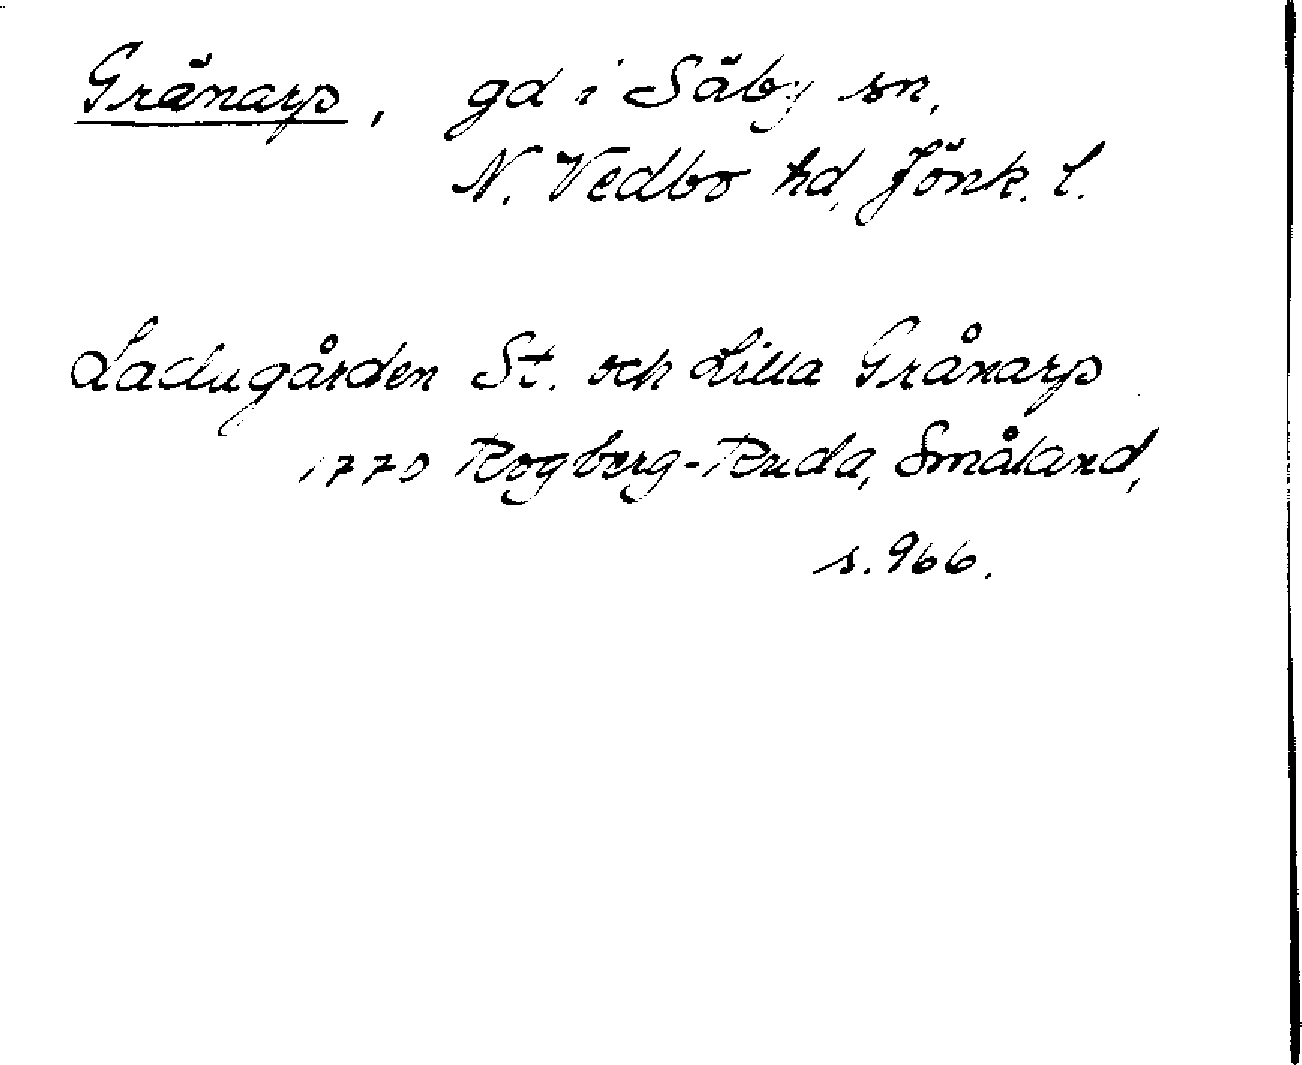 Gränarp, gd i Säby sn,
N. Vedbo hd, Jönk. l.
Ladugården St. och Lilla Grånarp
1770 Rogberg-Ruda, Småland,
s. 966.